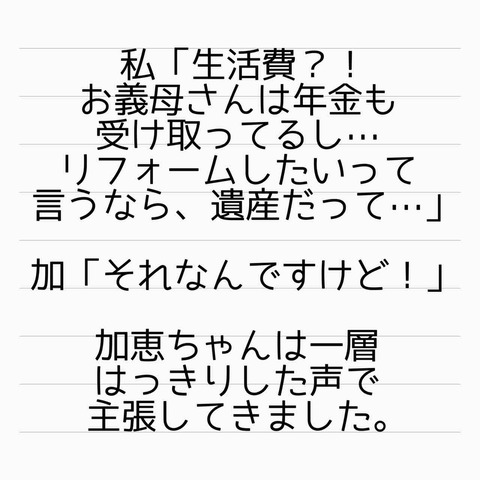 私「生活費？！
お義母さんは年金も
受け取ってるし…
リフォームしたいって
言うなら、遺産だって…」
加「それなんですけど！」
加恵ちゃんは一層
はっきりした声で
主張してきました。